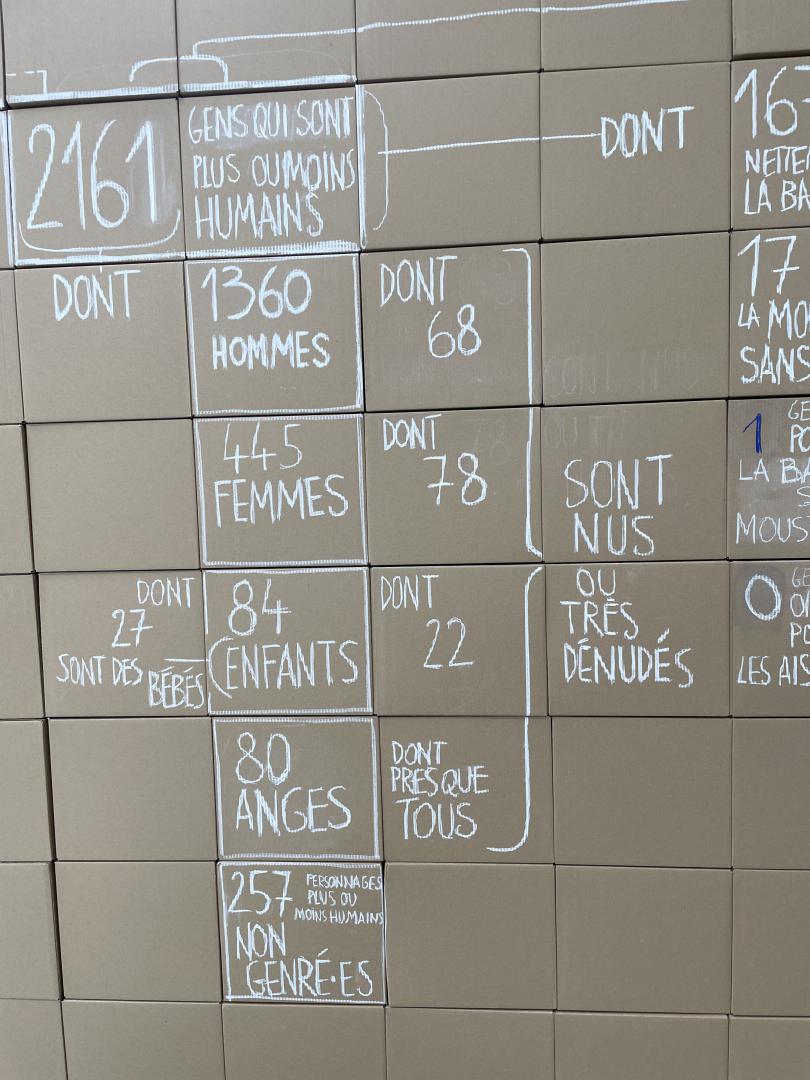 2161
GENS QUI SONT
PLUS OU MOINS
HUMAINS
DONT
16
LA
DONT
1360
HOMMES
DONT
68
17
LA
SANS
445
FEMMES
DONT
78
SONT
NUS
1
LA
DONT
27
SONT DES
BÉBÉS
84
ENFANTS
DONT
22
OU
TRÈS
DÉNUDÉS
0
LES
80
ANGES
DONT
PRESQUE
TOUS
257
PERSONNAGES
PLUS OU
MOINS HUMAINS
NON
GENRÉ·ES